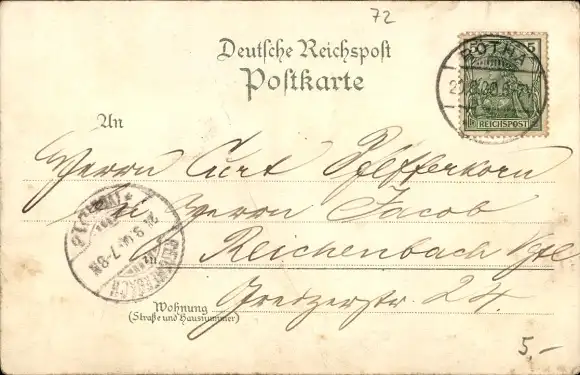 72
Deutsche Reichspost
Postkarte
5
REICHSPOST
GOTHA
An
Herrn Curt Pfefferkorn
Herrn Jacob
Reichenbach Vgtl
Greizerstr 24.
REICHENBACH
7-8N
Wohnung
(Straße und Hausnummer)
5,-